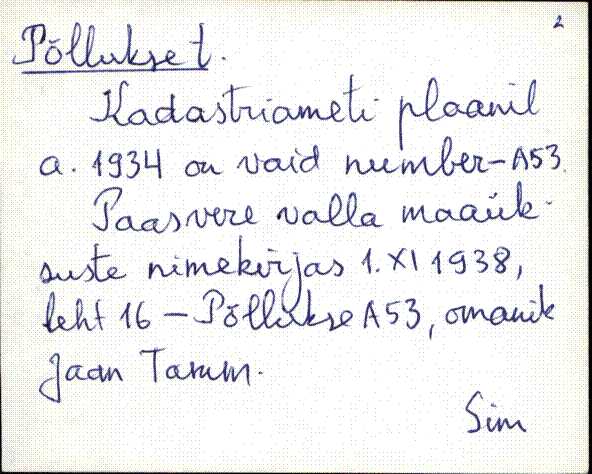 2
Põllukse t.
Kadastriameti plaanil
a. 1934 on vaid number - A53.
Paasvere valla maaük-
suste nimekirjas 1. XI 1938,
leht 16 - Põllukse A53, omanik
Jaan Tamm.
Sim